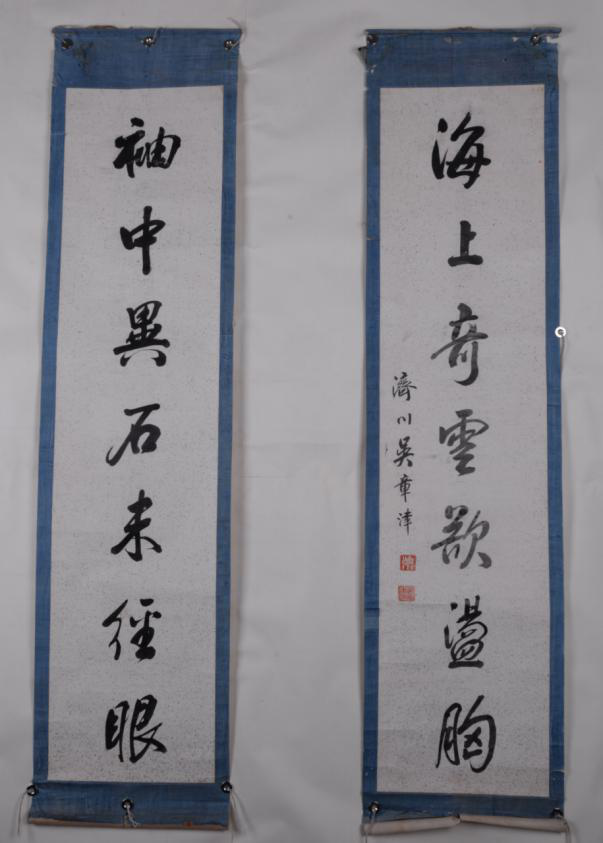 海上奇雲欲盪胸
濟川吳章
袖中異石未經眼